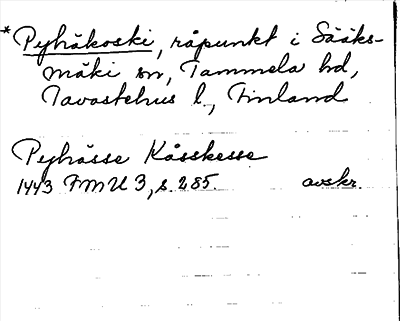 *Pyhäkoski, råpunkt i Sääks-
mäki sn, Tammela hd,
Tavastehus l., Finland
Pyhässe Kåsskesse
1443 FMU 3, s. 285. avskr.